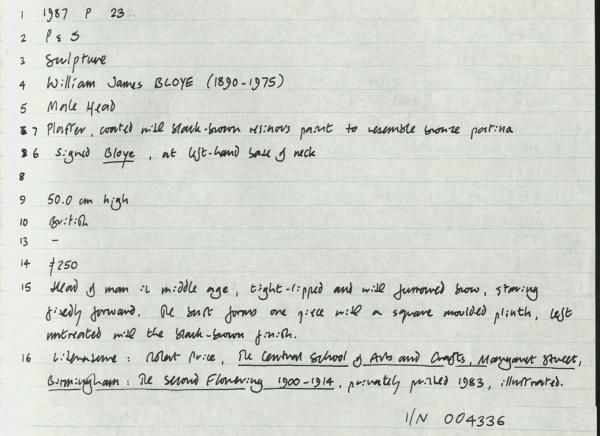 1 1987 P 23
2 P & S
3 Sculpture
4 William James BLOYE (1890-1975)
5 Male Head
7 Plaster, coated with black-brown resinous paint to resemble bronze patina
6 Signed Bloye, at left-hand base of neck
8
9 50.0 cm high
10 British
13 -
14 £250
15 Head of man in middle age, tight-lipped and with furrowed brow, staring
fixedly forward. The bust forms one piece with a square moulded plinth, left
untreated with the black-brown finish.
16 Literature: Robert Price, The Central School of Arts and Crafts, Margaret Street,
Birmingham: The Second Flowering 1900-1914, privately printed 1983, illustrated.
I/N 004336